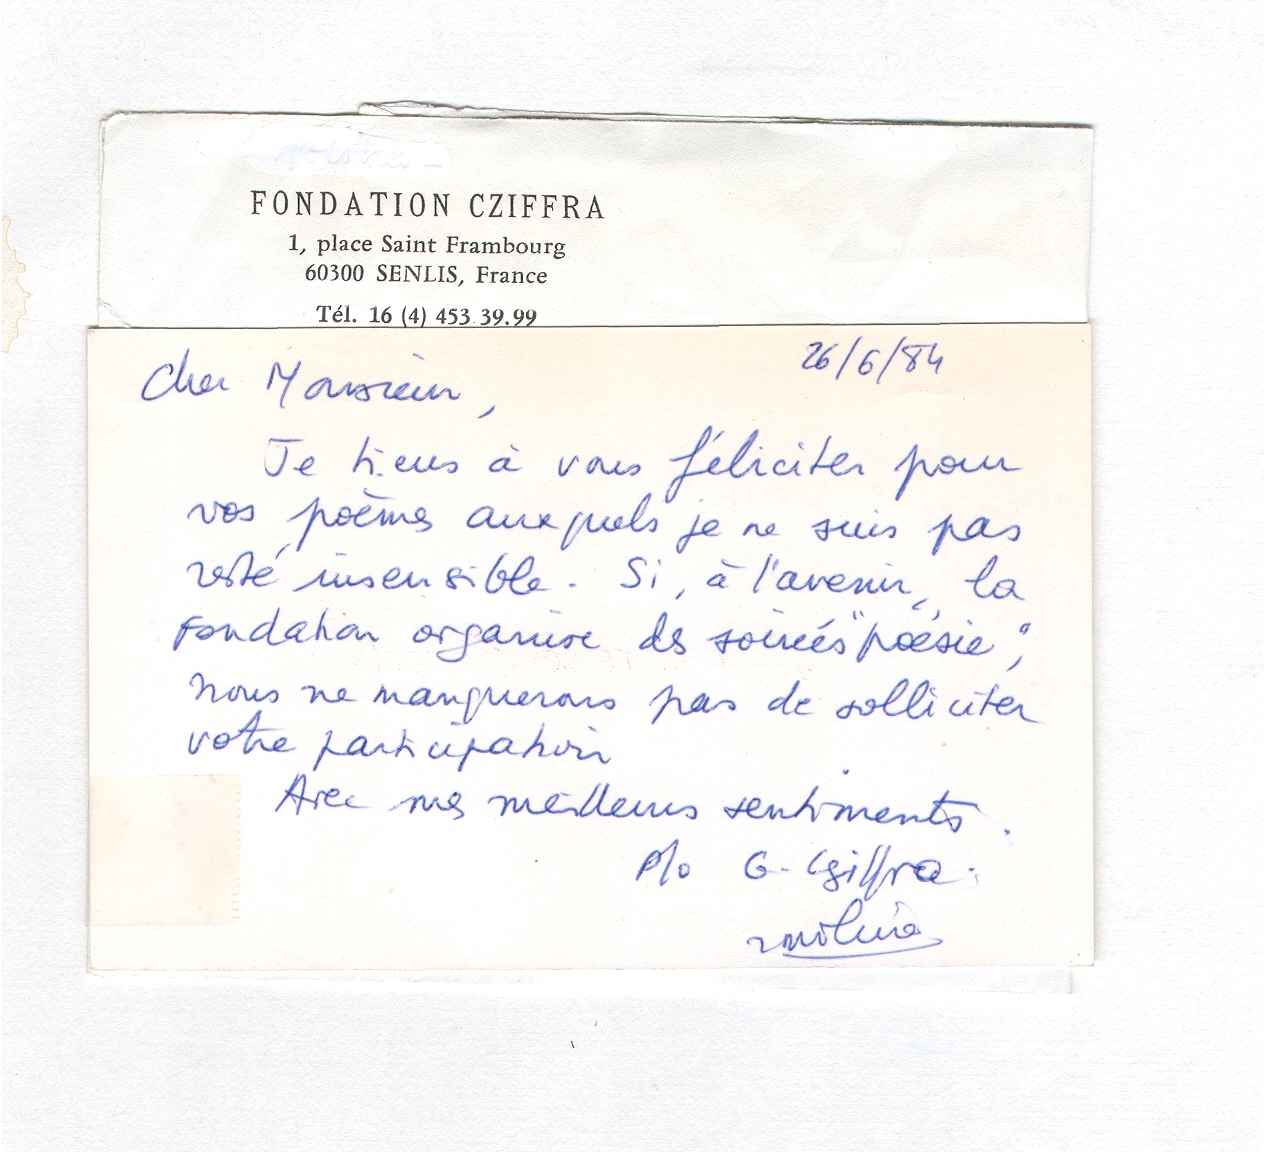 FONDATION CZIFFRA
1, place Saint Frambourg
60300 SENLIS, France
Tél. 16 (4) 453.39.99
26/6/84
Cher Monsieur,
Je tiens à vous féliciter pour
vos poèmes auxquels je ne suis pas
resté insensible. Si, à l'avenir, la
Fondation organise des soirées "poésie",
nous ne manquerons pas de solliciter
votre participation
Avec mes meilleurs sentiments.
P/o G. Cziffra.